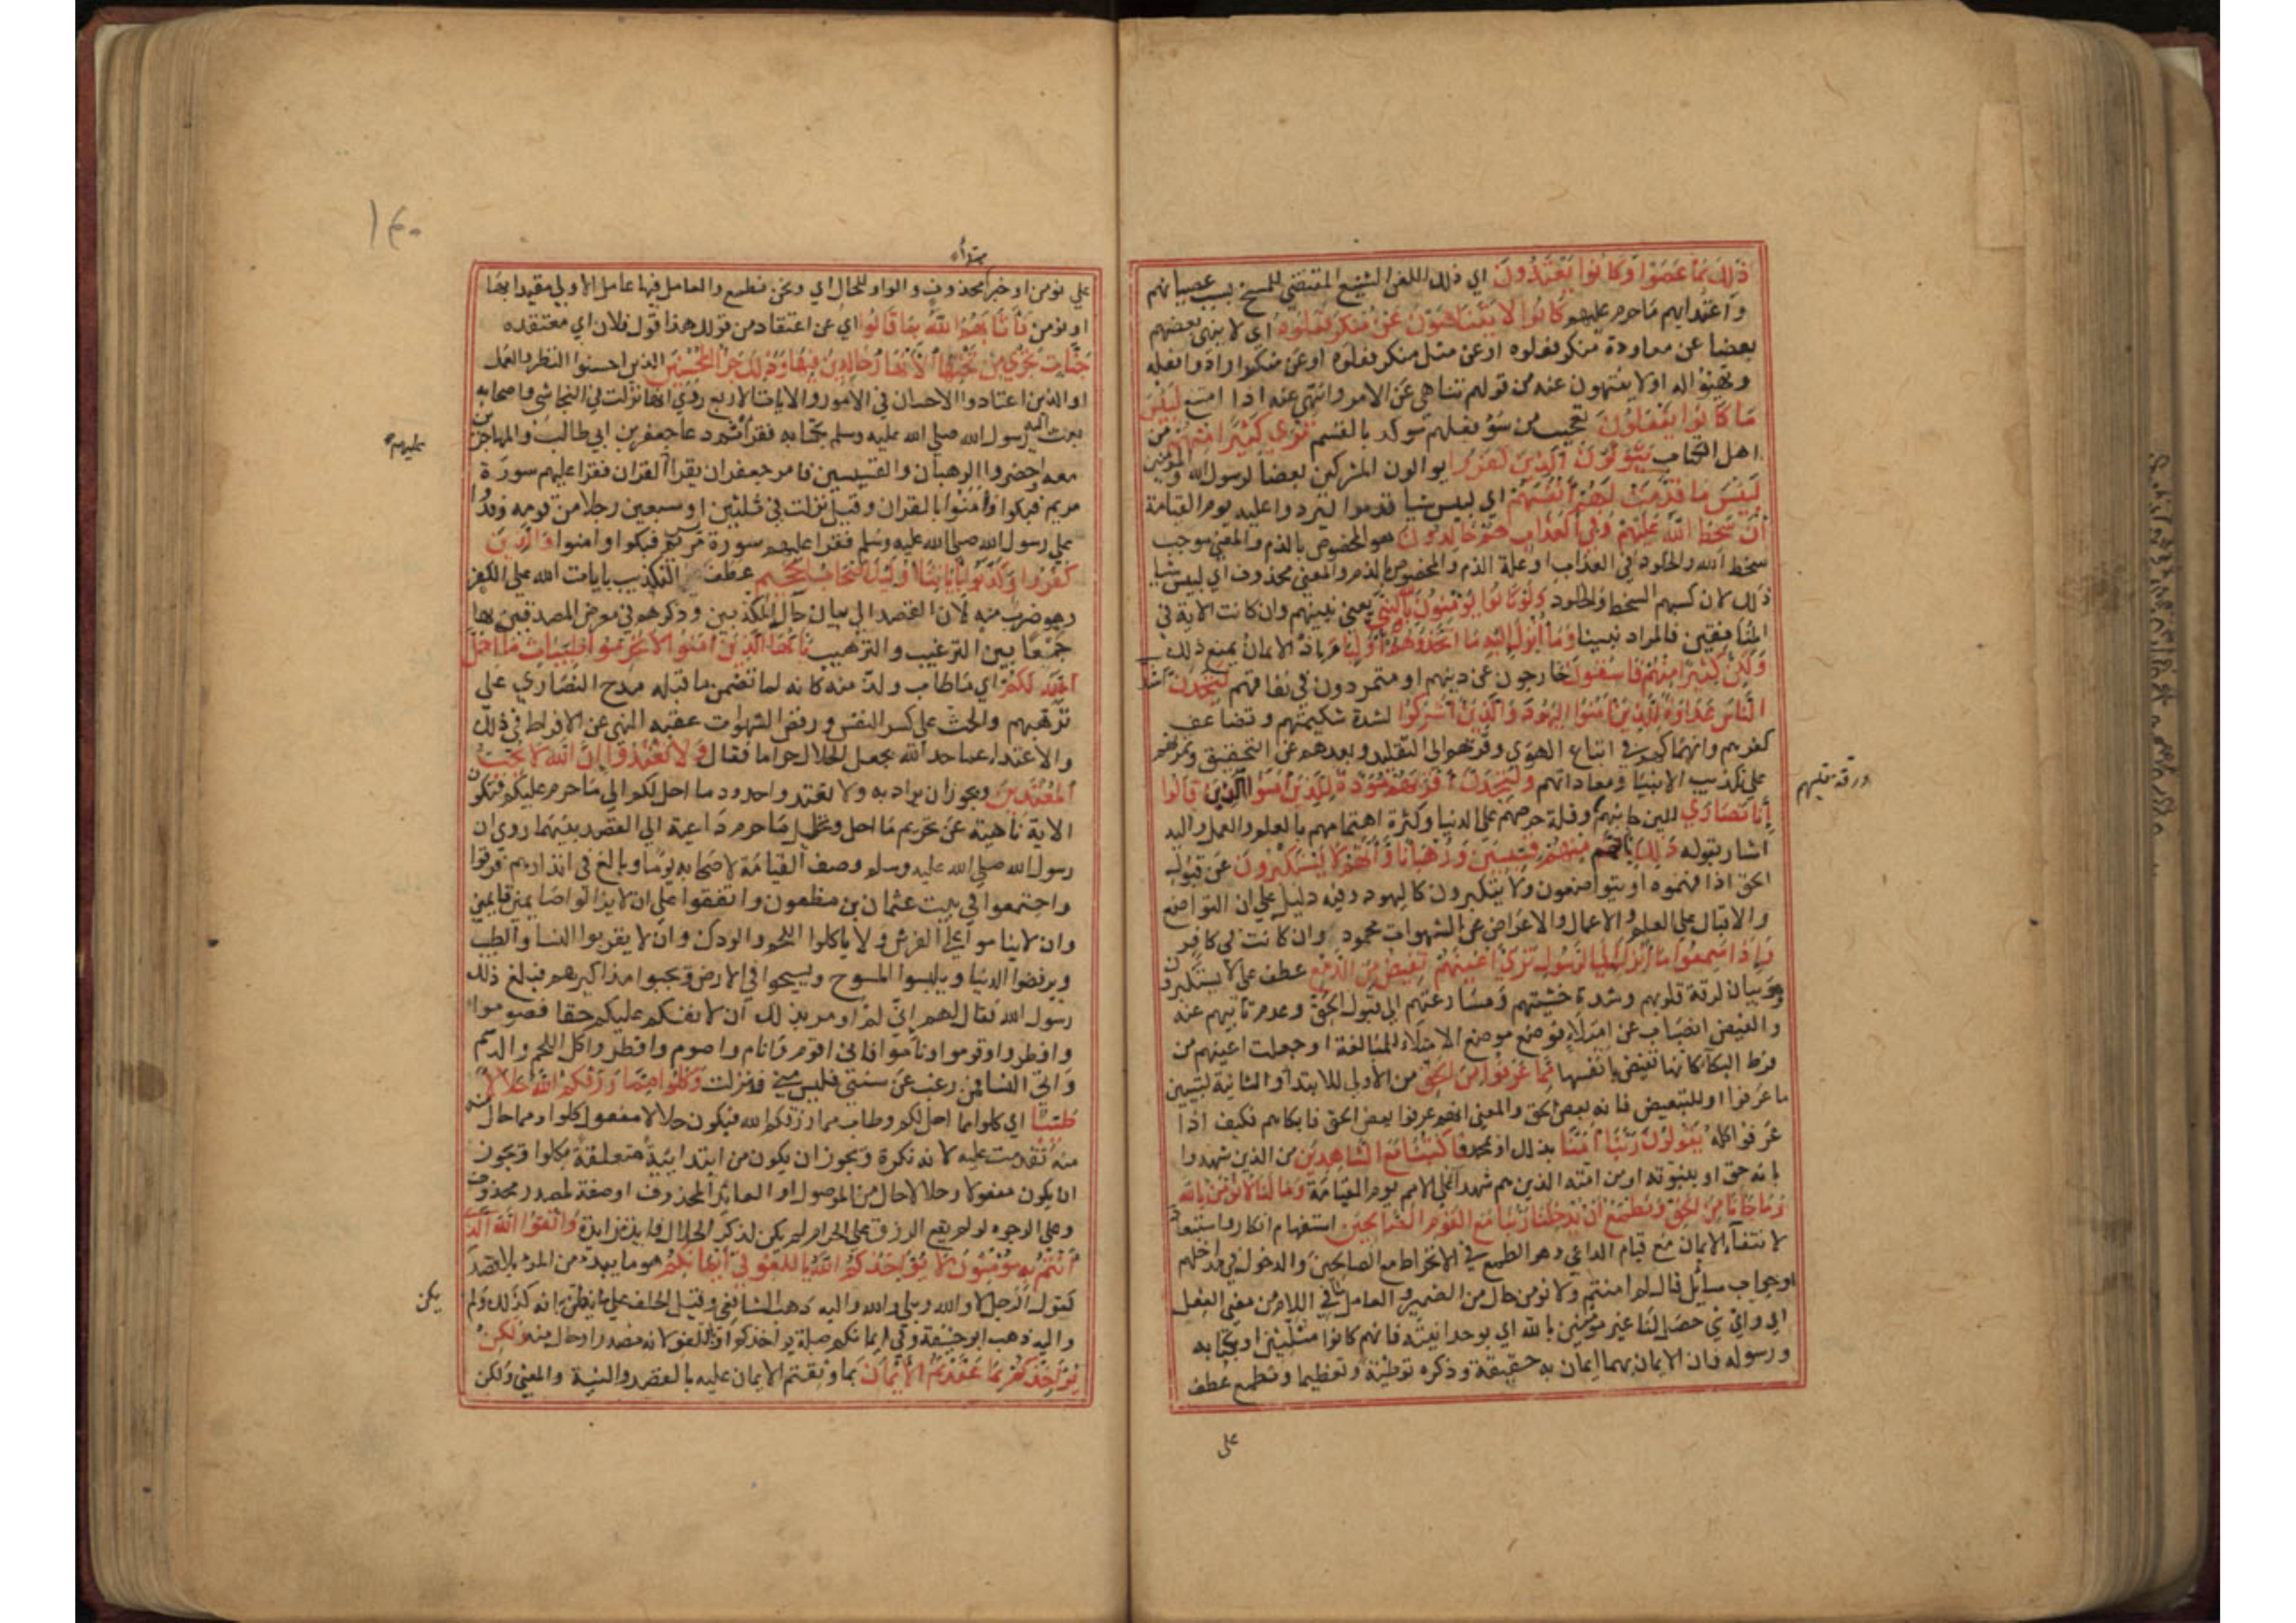 ذَلِكَ بِمَا عَصَوْا وَكَانُوا يَعْتَدُونَ اي ذلك اللعن الشنيع المقتضي للمسخ بسبب عصيانهم
واعتدايهم ما حرم عليهم كَانُوا لا يَتَنَاهَوْنَ عَنْ مُنكَرٍ فَعَلُوهُ اي لا ينهى بعضهم
بعضا عن معاودة منكر فعلوه او عن مثل منكر فعلوه او عن منكر ارادوا فعله
وتهيئوا له او لا ينتهون عنه من قولهم تناهى عن الامر وانتهى عنه اذا امتنع لَبِئْسَ
مَا كَانُوا يَفْعَلُونَ تعجيب من سؤ فعلهم موكد بالقسم تَرَى كَثِيرًا مِنْهُمْ من
اهل الكتاب يَتَوَلَّوْنَ الَّذِينَ كَفَرُوا يوالون المشركين بعضا لرسول الله والمؤمنين
لَبِئْسَ مَا قَدَّمَتْ لَهُمْ أَنْفُسُهُمْ اي لبيس شيا قدموا ليردوا عليه يوم القيامة
أَنْ سَخِطَ اللَّهُ عَلَيْهِمْ وَفِي الْعَذَابِ هُمْ خَالِدُونَ هو المخصوص بالذم والمعنى موجب
سخط الله والخلود في العذاب او علة الذم والمخصوص بالذم والمعنى محذوف اي لبيس شيا
ذلك لان كسبهم السخط والخلود وَلَوْ كَانُوا يُؤْمِنُونَ بِاللَّهِ وَالنَّبِيِّ يعني نبيهم وان كانت الاية في
المنافقين فالمراد نبينا وَمَا أُنْزِلَ إِلَيْهِ مَا اتَّخَذُوهُمْ أَوْلِيَاءَ اذ الايمان يمنع ذلك
وَلَكِنَّ كَثِيرًا مِنْهُمْ فَاسِقُونَ خارجون عن دينهم او متمردون في نفاقهم لَتَجِدَنَّ أَشَدَّ
النَّاسِ عَدَاوَةً لِلَّذِينَ آمَنُوا الْيَهُودَ وَالَّذِينَ أَشْرَكُوا لشدة شكيمتهم وتضاعف
كفرهم وانهماكهم في اتباع الهوى وركونهم الى التقليد وبعدهم عن التحقيق وتمرنهم
على تكذيب الانبيا ومعاداتهم وَلَتَجِدَنَّ أَقْرَبَهُمْ مَوَدَّةً لِلَّذِينَ آمَنُوا الَّذِينَ قَالُوا
إِنَّا نَصَارَى للين جانبهم وقلة حرصهم على الدنيا وكثرة اهتمامهم بالعلم والعمل واليه
ورقة قلبهم
اشار بقوله ذَلِكَ بِأَنَّ مِنْهُمْ قِسِّيسِينَ وَرُهْبَانًا وَأَنَّهُمْ لَا يَسْتَكْبِرُونَ عن قبول
الحق اذا فهموه او يتواضعون ولا يتكبرون كاليهود وفيه دليل على ان التواضع
والاقبال على العلم والاعمال والاعراض عن الشهوات محمود وان كانت في كافر
وَإِذَا سَمِعُوا مَا أُنْزِلَ إِلَى الرَّسُولِ تَرَى أَعْيُنَهُمْ تَفِيضُ مِنَ الدَّمْعِ عطف على لا يستكبرون
وهو بيان لرقة قلوبهم وشدة خشيتهم ومسارعتهم الى قبول الحق وعدم تابيهم عنه
والفيض انصباب عن امتلاء فوضع موضع الامتلاء للمبالغة او جعلت اعينهم من
فرط البكا كانها تفيض بانفسها مِمَّا عَرَفُوا مِنَ الْحَقِّ من الاولى للابتداء والثانية لتبيين
ما عرفوا او للتبعيض فانه بعض الحق والمعنى انهم عرفوا بعض الحق فابكاهم فكيف اذا
عرفوا كله يَقُولُونَ رَبَّنَا آمَنَّا بذلك او بمحمد فَاكْتُبْنَا مَعَ الشَّاهِدِينَ من الذين شهدوا
بانه حق او بنبوته او من امته الذين هم شهدا على الامم يوم القيامة وَمَا لَنَا لَا نُؤْمِنُ بِاللَّهِ
وَمَا جَاءَنَا مِنَ الْحَقِّ وَنَطْمَعُ أَنْ يُدْخِلَنَا رَبُّنَا مَعَ الْقَوْمِ الصَّالِحِينَ استفهام انكار واستبعاد
لانتفاء الايمان مع قيام الداعي وهو الطمع في الانخراط مع الصالحين والدخول في مداخلهم
او جواب سايل قال لم امنتم ولا نومن حال من الضمير والعامل ما في اللام من معنى الفعل
اي واي شي حصل لنا غير مومنين بالله اي بوحدانيته فانهم كانوا مثلثين او بكتابه
ورسوله فان الايمان بهما ايمان به حقيقة وذكره توطئة وتعظيما ونطمع عطف
على
١٤٠
مبتدأ
على نومن او خبر محذوف والواو للحال اي ونحن نطمع والعامل فيها عامل الاولى مقيدا بها
او نومن فَأَثَابَهُمُ اللَّهُ بِمَا قَالُوا اي عن اعتقاد من قولك هذا قول فلان اي معتقده
جَنَّاتٍ تَجْرِي مِنْ تَحْتِهَا الْأَنْهَارُ خَالِدِينَ فِيهَا وَذَلِكَ جَزَاءُ الْمُحْسِنِينَ الذين احسنوا النظر والعمل
او الذين اعتادوا الاحسان في الامور والايات الاربع روي انها نزلت في النجاشي واصحابه
بعث اليه رسول الله صلى الله عليه وسلم بكتابه فقراه ثم دعا جعفر بن ابي طالب والمهاجرين
معه واحضروا الرهبان والقسيسين فامر جعفر ان يقرا القران فقرا عليهم سورة
عليهم
مريم فبكوا وامنوا بالقران وقيل نزلت في ثلثين او سبعين رجلا من قومه وفدوا
على رسول الله صلى الله عليه وسلم فقرا عليهم سورة مريم فبكوا وامنوا وَالَّذِينَ
كَفَرُوا وَكَذَّبُوا بِآيَاتِنَا أُولَئِكَ أَصْحَابُ الْجَحِيمِ عطف التكذيب بايات الله على الكفر
وهو ضرب منه لان القصد الى بيان حال المكذبين وذكرهم في معرض المصدقين بها
جمعا بين الترغيب والترهيب يَا أَيُّهَا الَّذِينَ آمَنُوا لَا تُحَرِّمُوا طَيِّبَاتِ مَا أَحَلَّ
اللَّهُ لَكُمْ اي ما طاب ولذ منه كانه لما تضمن ما قبله مدح النصارى على
ترهبهم والحث على كسر النفس ورفض الشهوات عقبه النهي عن الافراط في ذلك
والاعتداء عما حد الله بجعل الحلال حراما فقال وَلَا تَعْتَدُوا إِنَّ اللَّهَ لَا يُحِبُّ
الْمُعْتَدِينَ ويجوز ان يراد به ولا تعتدوا حدود ما احل لكم الى ما حرم عليكم فتكون
الاية ناهية عن تحريم ما احل وتحليل ما حرم داعية الى القصد بينهما روي ان
رسول الله صلى الله عليه وسلم وصف القيامة لاصحابه يوما وبالغ في انذارهم فرقوا
واجتمعوا في بيت عثمان بن مظعون واتفقوا على ان لا يزالوا صايمين قايمين
وان لا يناموا على الفرش ولا ياكلوا اللحم والودك وان لا يقربوا النسا والطيب
ويرفضوا الدنيا ويلبسوا المسوح ويسيحوا في الارض ويجبوا مذاكيرهم فبلغ ذلك
رسول الله فقال لهم اني لم اومر بذلك ان لانفسكم عليكم حقا فصوموا
وافطروا وقوموا وناموا فاني اقوم وانام واصوم وافطر واكل اللحم والدسم
واتي النسا فمن رغب عن سنتي فليس مني فنزلت وَكُلُوا مِمَّا رَزَقَكُمُ اللَّهُ حَلَالًا
طَيِّبًا اي كلوا ما احل لكم وطاب مما رزقكم الله فيكون حلالا مفعول كلوا ومما حال منه
منه تقدمت عليه لانه نكرة ويجوز ان يكون من ابتدايية متعلقة بكلوا ويجوز
ان يكون مفعولا وحلالا حال من الموصول او العائد المحذوف او صفة لمصدر محذوف
وعلى الوجوه لو لم يقع الرزق على الحرام لم يكن لذكر الحلال فايدة زايدة وَاتَّقُوا اللَّهَ الَّذِي
أَنْتُمْ بِهِ مُؤْمِنُونَ لَا يُؤَاخِذُكُمُ اللَّهُ بِاللَّغْوِ فِي أَيْمَانِكُمْ هو ما يبدو من المرء بلا قصد
كقول الرجل لا والله وبلى والله واليه ذهب الشافعي وقيل الحلف على ما يظن انه كذلك ولم
يكن
واليه ذهب ابو حنيفة وفي ايمانكم صلة يواخذكم او اللغو لانه مصدر او حال منه وَلَكِنْ
يُؤَاخِذُكُمْ بِمَا عَقَّدْتُمُ الْأَيْمَانَ بما وثقتم الايمان عليه بالقصد والنية والمعنى ولكن